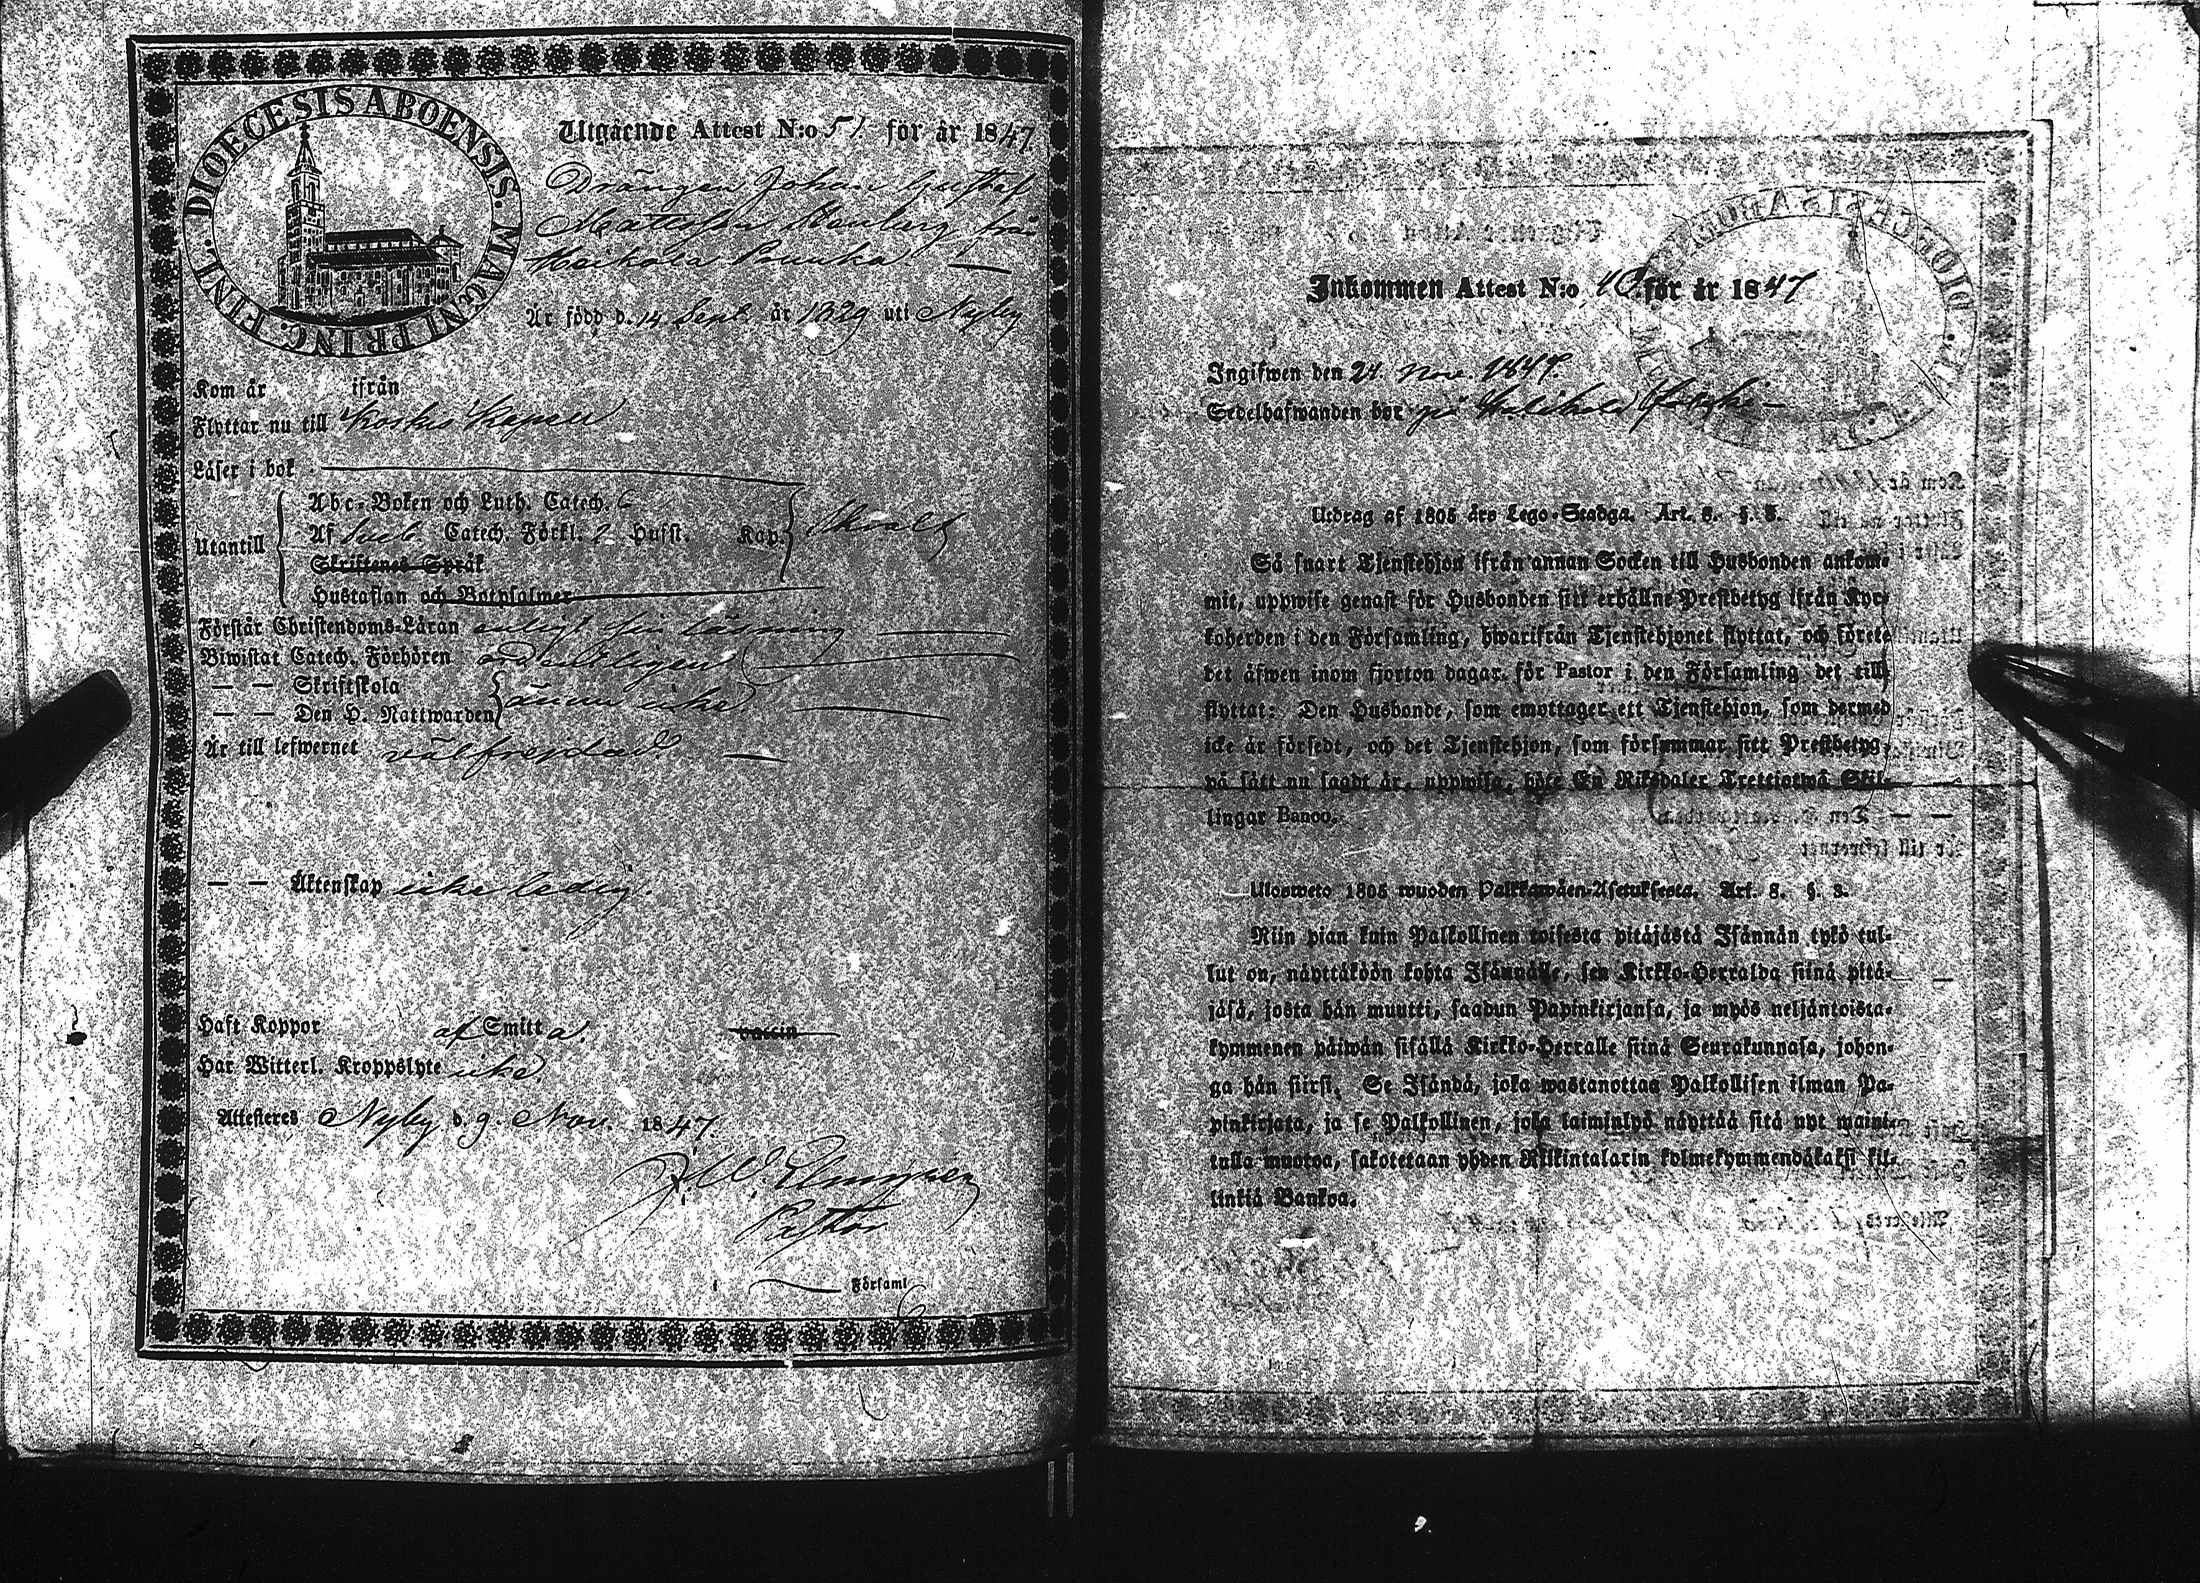 DIOECESIS ABOENSIS. MAGNI PRINC. FINL.
Utgående Attest N:o 51 för år 1847
Drängen Johan Gustaf
från
Är född d. 14 Sept. år 1829 uti Nyby
Kom år ifrån
Flyttar nu till Koskis Kapell
Läser i bok
Utantill
Abc-Boken och Luth. Catech. 6
Af Catech. Förkl. 2 Husst. Kap.
Skriftenes Språk
Hustaflan och Botpsalmer
Förstår Christendoms-Läran enligt sin läsning
Biwistat Catech. Förhören ordentligen
— — Skriftskola
— — Den H. Nattwarden ännu icke
Är till lefwernet välfrejdad
— — Äktenskap icke ledig.
Haft Koppor af Smitta. vaccin
Har Witterl. Kroppslyte icke.
Attesteres Nyby d. 9. Nov. 1847.
Pastor
i Församl
Inkommen Attest N:o 40 för år 1847
Ingifwen den 24. Nov. 1847.
Sedelhafwanden bor på
Utdrag af 1805 års Lego-Stadga. Art. 8. §. 3.
Så snart Tjenstehjon ifrån annan Socken till Husbonden ankom-
mit, uppwise genast för Husbonden sitt erhållne Prestbetyg ifrån Kyr-
koherden i den Församling, hwarifrån Tjenstehjonet flyttat, och förete
det äfwen inom fjorton dagar för Pastor i den Församling det till-
flyttat: Den Husbonde, som emottager ett Tjenstehjon, som dermed
icke är försedt, och det Tjenstehjon, som försummar sitt Prestbetyg
på sätt nu sagdt är, uppwisa, böte En Riksdaler Trettiotwå Skil-
lingar Banco.
Ulosweto 1805 wuoden Palkkawäen-Asetuksesta. Art. 8. §. 3.
Niin pian kuin Palkollinen toisesta pitäjästä Isännän tykö tul-
lut on, näyttäköön kohta Isännälle, sen Kirkko-Herralda siinä pitä-
jäsä, josta hän muutti, saadun Papinkirjansa, ja myös neljäntoista-
kymmenen päiwän sisällä Kirkko-Herralle siinä Seurakunnasa, johon-
ga hän siirsi. Se Isändä, joka wastanottaa Palkollisen ilman Pa-
pinkirjata, ja se Palkollinen, joka laiminlyö näyttää sitä nyt maini-
tulla muotoa, sakotetaan yhden Riikintalarin kolmekymmendäkaksi kil-
linkiä Bankoa.